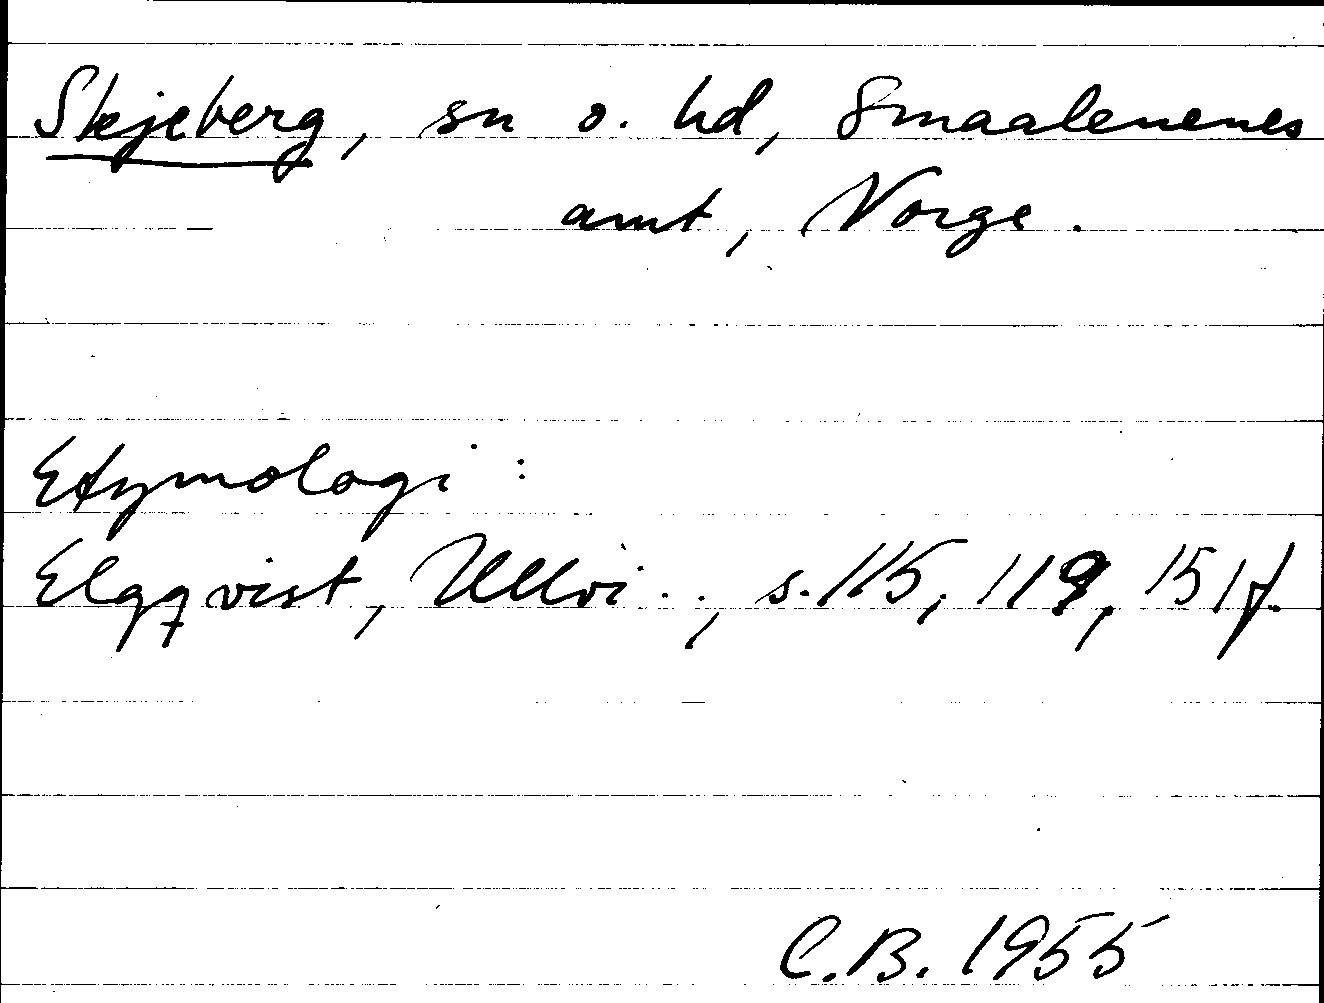 Skjeberg, sn o. hd, Smaalenenes
amt, Norge.
Etymologi:
Elgqvist, Ullvi.., s. 115, 119, 151f.
C.B. 1955